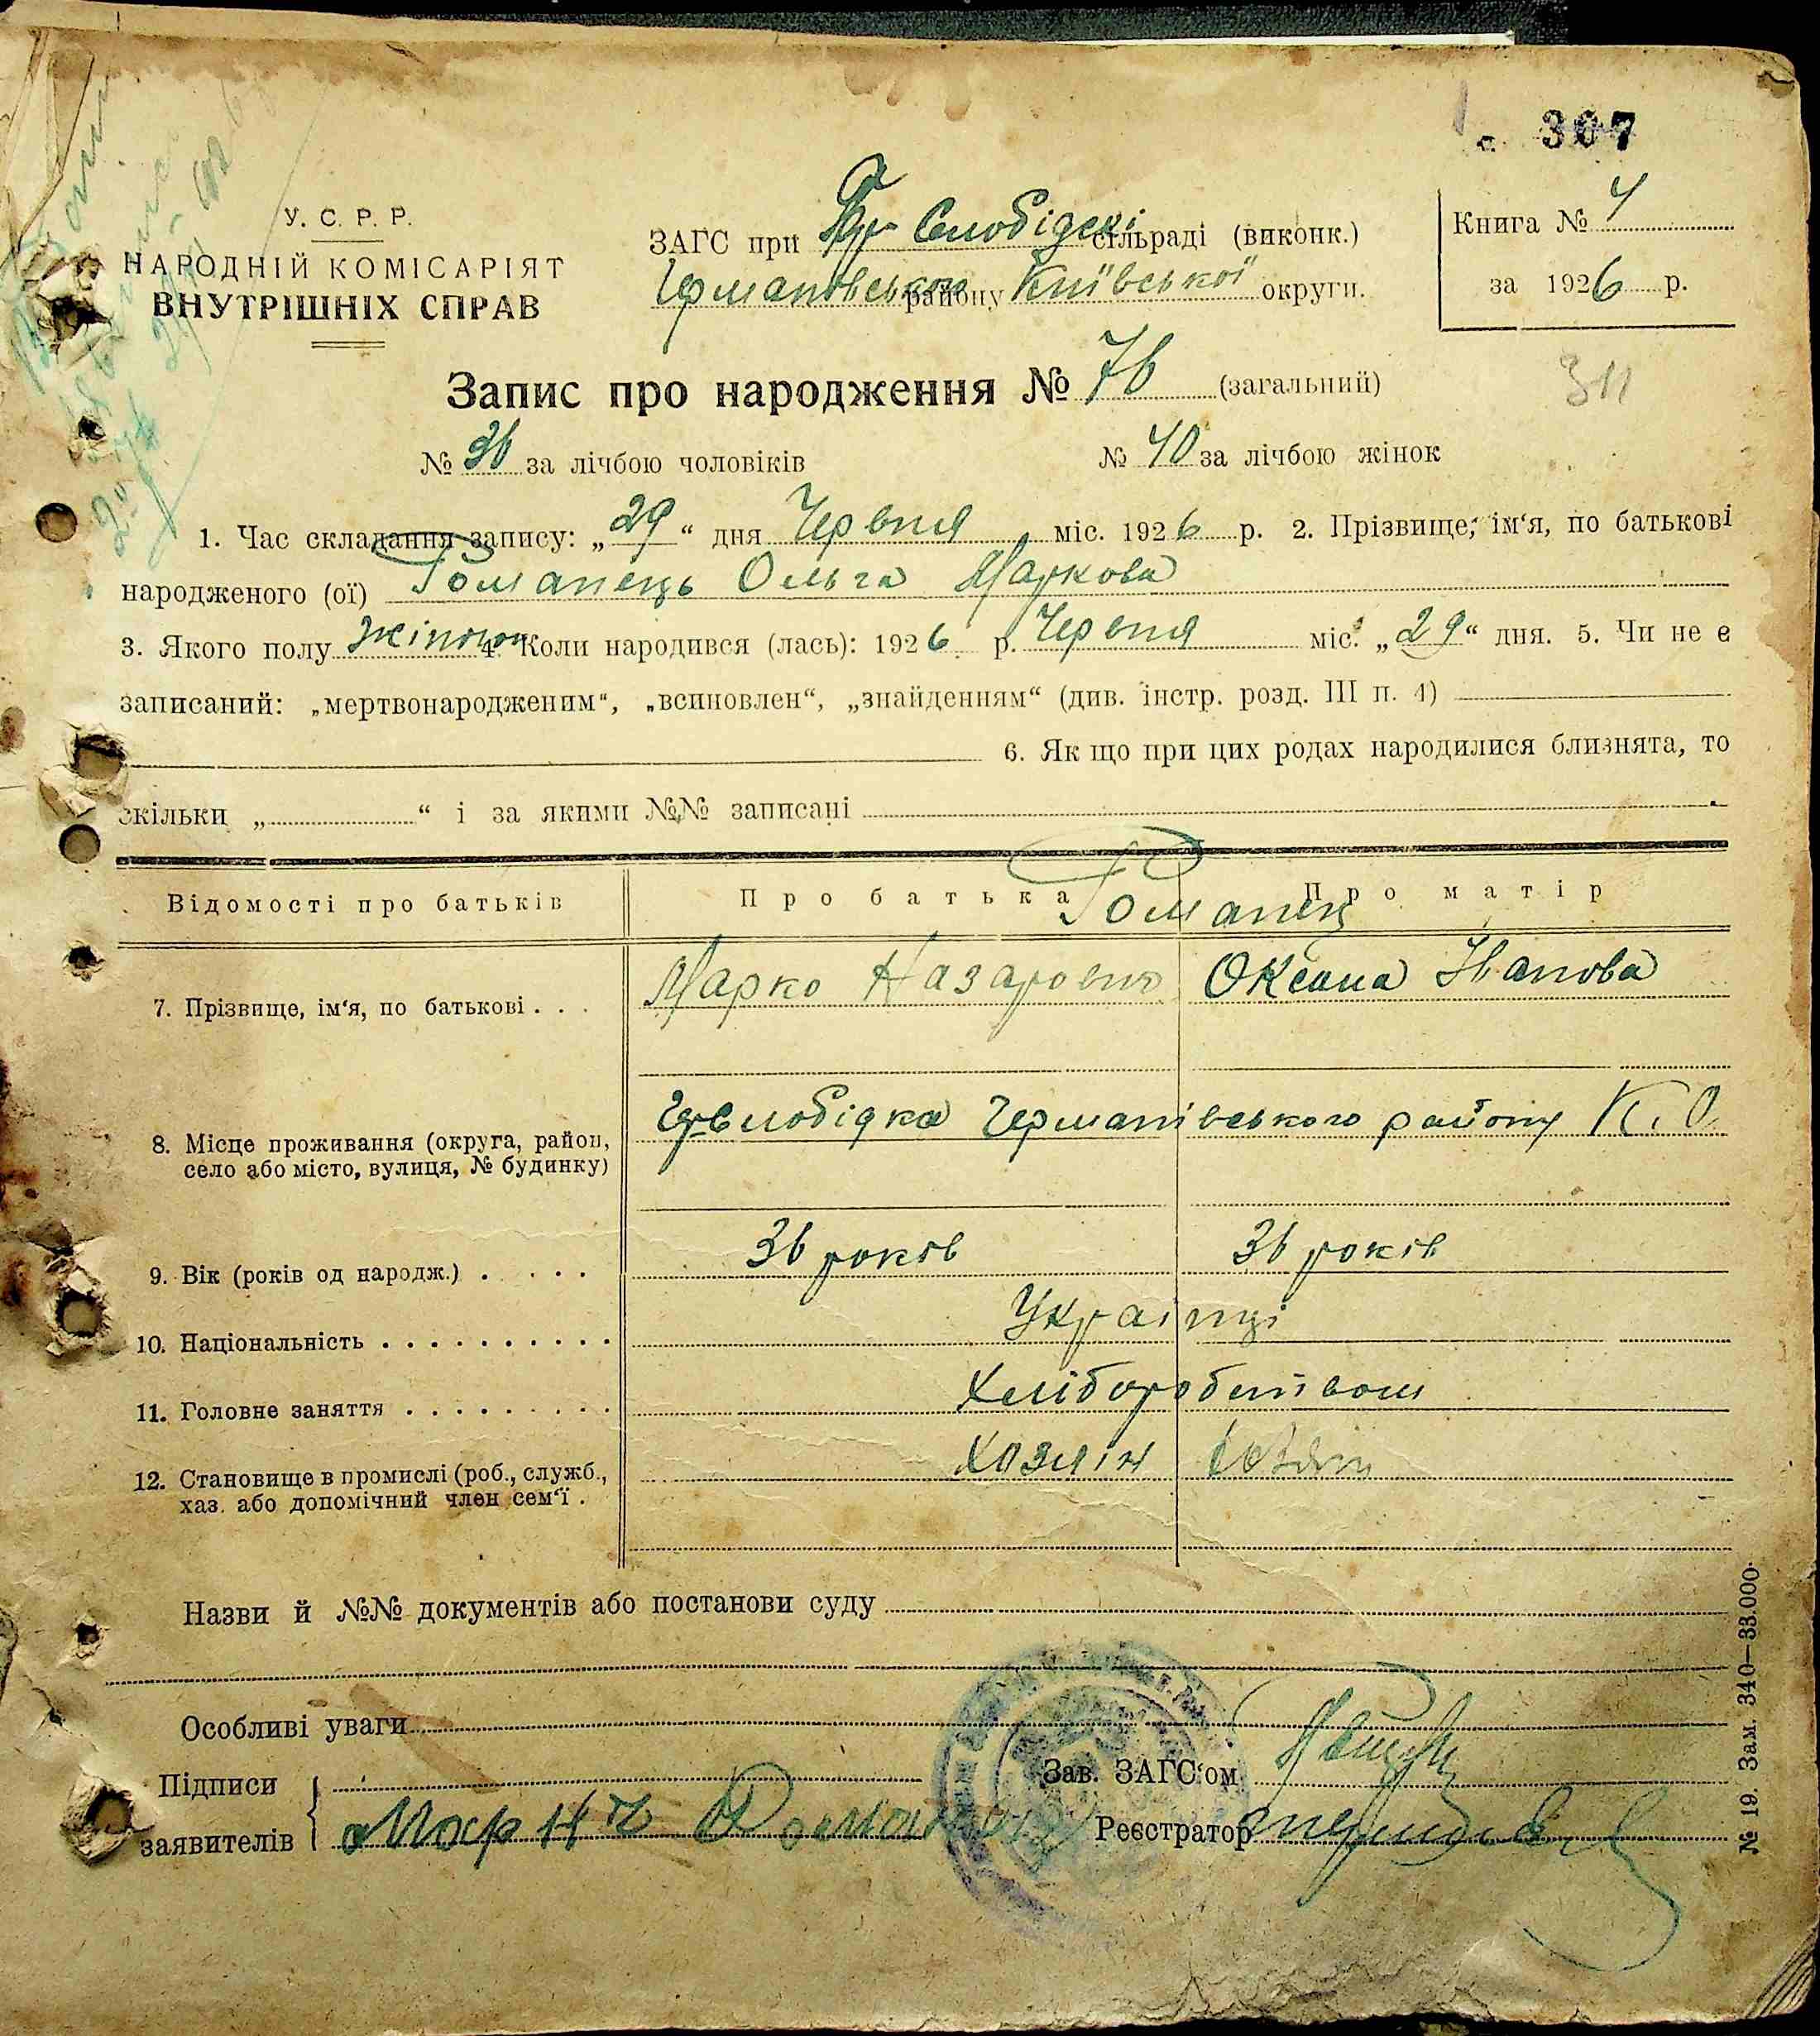 307
У. С. Р. Р.
НАРОДНІЙ КОМІСАРІЯТ
ВНУТРІШНІХ СПРАВ
ЗАГС при Гр Слобідскі сільраді (виконк.)
Германовського району Київської округи.
Книга № 4
за 1926 р.
Запис про народження № 76 (загальний)
311
№ 36 за лічбою чоловіків № 40 за лічбою жінок
1. Час складання запису: „29“ дня Червня міс. 1926 р. 2. Прізвище, ім‘я, по батькові
народженого (ої) Романець Ольга Маркова
3. Якого полу жіночого 4. Коли народився (лась): 1926 р. Червня міс. „29“ дня. 5. Чи не є
записаний: „мертвонародженим“, „всиновлен“, „знайденням“ (див. інстр. розд. III п. 4)
6. Як що при цих родах народилися близнята, то
скільки „ “ і за якими №№ записані
Відомості про батьків Про батька Про матір
Романец
7. Прізвище, ім‘я, по батькові . . . Марко Назарович Оксана Іванова
8. Місце проживання (округа, район,
село або місто, вулиця, № будинку) Гр Слобідка Германівського району К. О.
9. Вік (років од народж.) . . . . . 36 років 36 років
10. Національність . . . . . . . . . . Українці
11. Головне заняття . . . . . . . . . Хліборобством
12. Становище в промислі (роб., служб.,
хаз. або допомічний член сем‘ї . Хозяін
Назви й №№ документів або постанови суду
Особливі уваги
Підписи
заявителів Марко Романец
Зав. ЗАГС‘ом
Реєстратор
№ 19. Зам. 340—33.000.